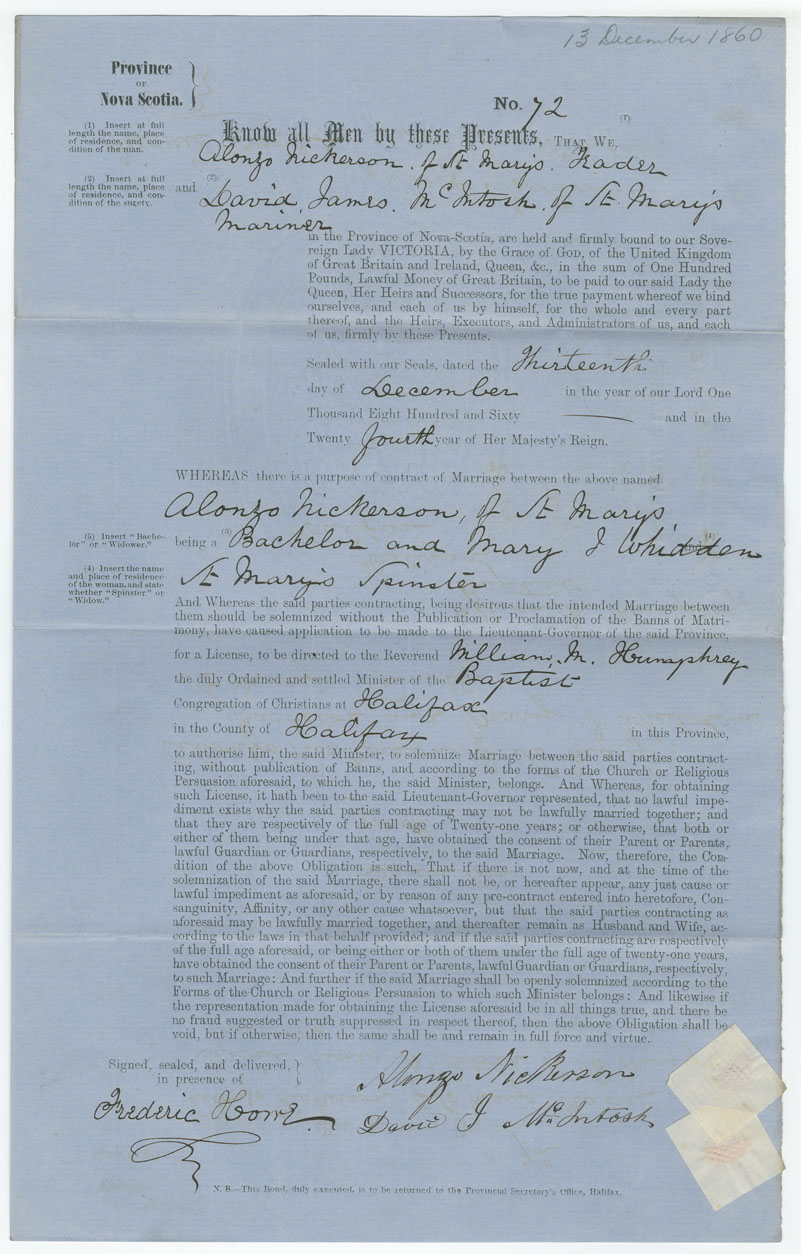 13 December 1860
Province
OF
Nova Scotia.
No. 72
(1) Insert at full
length the name, place
of residence, and con-
dition of the man.
(1)
Know all Men by these Presents, THAT WE,
Alonzo Nickerson. of St Mary's. Trader
(2) Insert at full
length the name, place
of residence, and con-
dition of the surety.
(2)
and David James. McIntosh. of St Mary's
Mariner
in the Province of Nova-Scotia, are held and firmly bound to our Sove-
reign Lady VICTORIA, by the Grace of GOD, of the United Kingdom
of Great Britain and Ireland, Queen, &c., in the sum of One Hundred
Pounds, Lawful Money of Great Britain, to be paid to our said Lady the
Queen, Her Heirs and Successors, for the true payment whereof we bind
ourselves, and each of us by himself, for the whole and every part
thereof, and the Heirs, Executors, and Administrators of us, and each
of us, firmly by these Presents.
Sealed with our Seals, dated the Thirteenth
day of December in the year of our Lord One
Thousand Eight Hundred and Sixty —— and in the
Twenty fourth year of Her Majesty's Reign.
WHEREAS there is a purpose of contract of Marriage between the above named
Alonzo Nickerson, of St Mary's
(3) Insert "Bache-
lor" or "Widower."
being a (3) Bachelor and Mary J Whidden
(4) Insert the name
and place of residence
of the woman, and state
whether "Spinster" or
"Widow."
St Mary's Spinster
And Whereas the said parties contracting, being desirous that the intended Marriage between
them should be solemnized without the Publication or Proclamation of the Banns of Matri-
mony, have caused application to be made to the Lieutenant-Governor of the said Province,
for a License, to be directed to the Reverend William. M. Humphrey
the duly Ordained and settled Minister of the Baptist
Congregation of Christians at Halifax
in the County of Halifax in this Province,
to authorise him, the said Minister, to solemnize Marriage between the said parties contract-
ing, without publication of Banns, and according to the forms of the Church or Religious
Persuasion aforesaid, to which he, the said Minister, belongs. And Whereas, for obtaining
such License, it hath been to the said Lieutenant-Governor represented, that no lawful impe-
diment exists why the said parties contracting may not be lawfully married together; and
that they are respectively of the full age of Twenty-one years; or otherwise, that both or
either of them being under that age, have obtained the consent of their Parent or Parents,
lawful Guardian or Guardians, respectively, to the said Marriage. Now, therefore, the Con-
dition of the above Obligation is such, That if there is not now, and at the time of the
solemnization of the said Marriage, there shall not be, or hereafter appear, any just cause or
lawful impediment as aforesaid, or by reason of any pre-contract entered into heretofore, Con-
sanguinity, Affinity, or any other cause whatsoever, but that the said parties contracting as
aforesaid may be lawfully married together, and thereafter remain as Husband and Wife, ac-
cording to the laws in that behalf provided; and if the said parties contracting are respectively
of the full age aforesaid, or being either or both of them under the full age of twenty-one years,
have obtained the consent of their Parent or Parents, lawful Guardian or Guardians, respectively,
to such Marriage: And further if the said Marriage shall be openly solemnized according to the
Forms of the Church or Religious Persuasion to which such Minister belongs: And likewise if
the representation made for obtaining the License aforesaid be in all things true, and there be
no fraud suggested or truth suppressed in respect thereof, then the above Obligation shall be
void, but if otherwise, then the same shall be and remain in full force and virtue.
Signed, sealed, and delivered,
in presence of
Alonzo Nickerson
Frederic Howe.
David J McIntosh
N. B.—This Bond, duly executed, is to be returned to the Provincial Secretary's Office, Halifax.